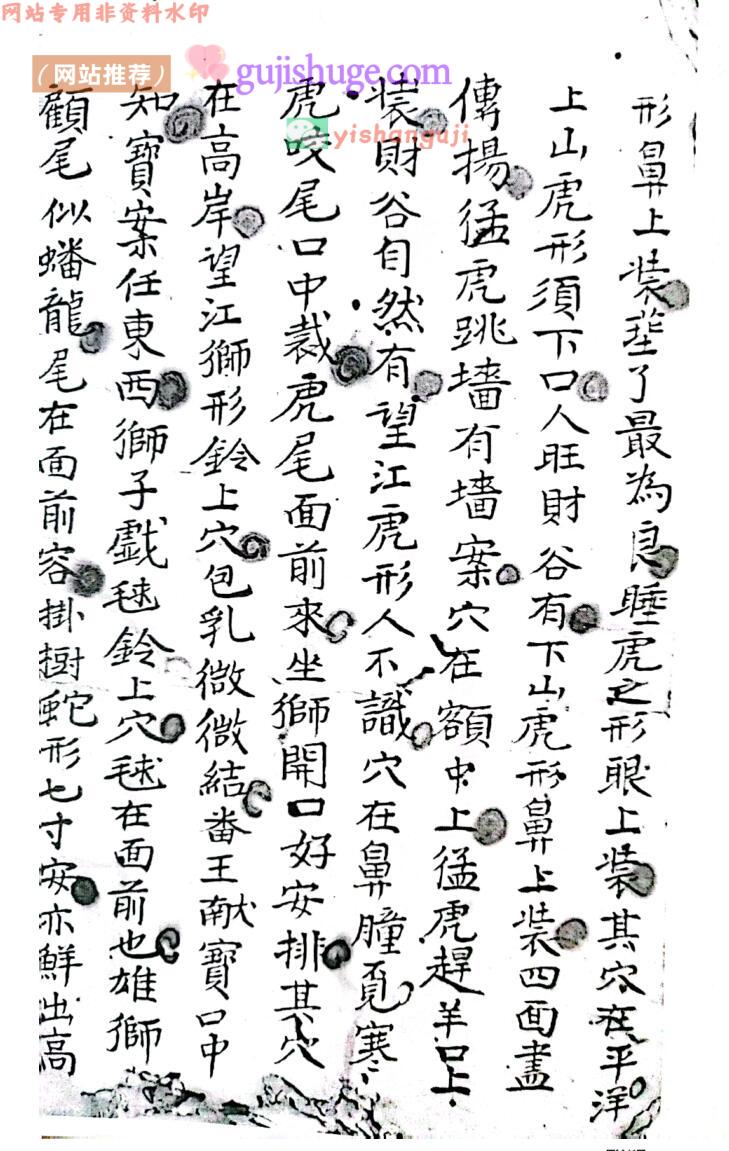 网站专用非资料水印
（网站推荐）
gujishuge.com
yishanguji
形鼻上裝塟了最為良睡虎之形眼上裝其穴在平洋
上山虎形須下口人旺財谷有下山虎形鼻上裝四面盡
傳揚猛虎跳墻有墻案穴在額中上猛虎趕羊口上
裝財谷自然有望江虎形人不識穴在鼻膧覓寒
虎咬尾口中裁虎尾面前來坐獅開口好安排其穴
在高岸望江獅形鈴上穴包乳微微結畨王献寶口中
知寶案任東西獅子戲毬鈴上穴毬在面前也雄獅
顧尾似蟠龍尾在面前容掛樹蛇形七寸安亦鮮出高